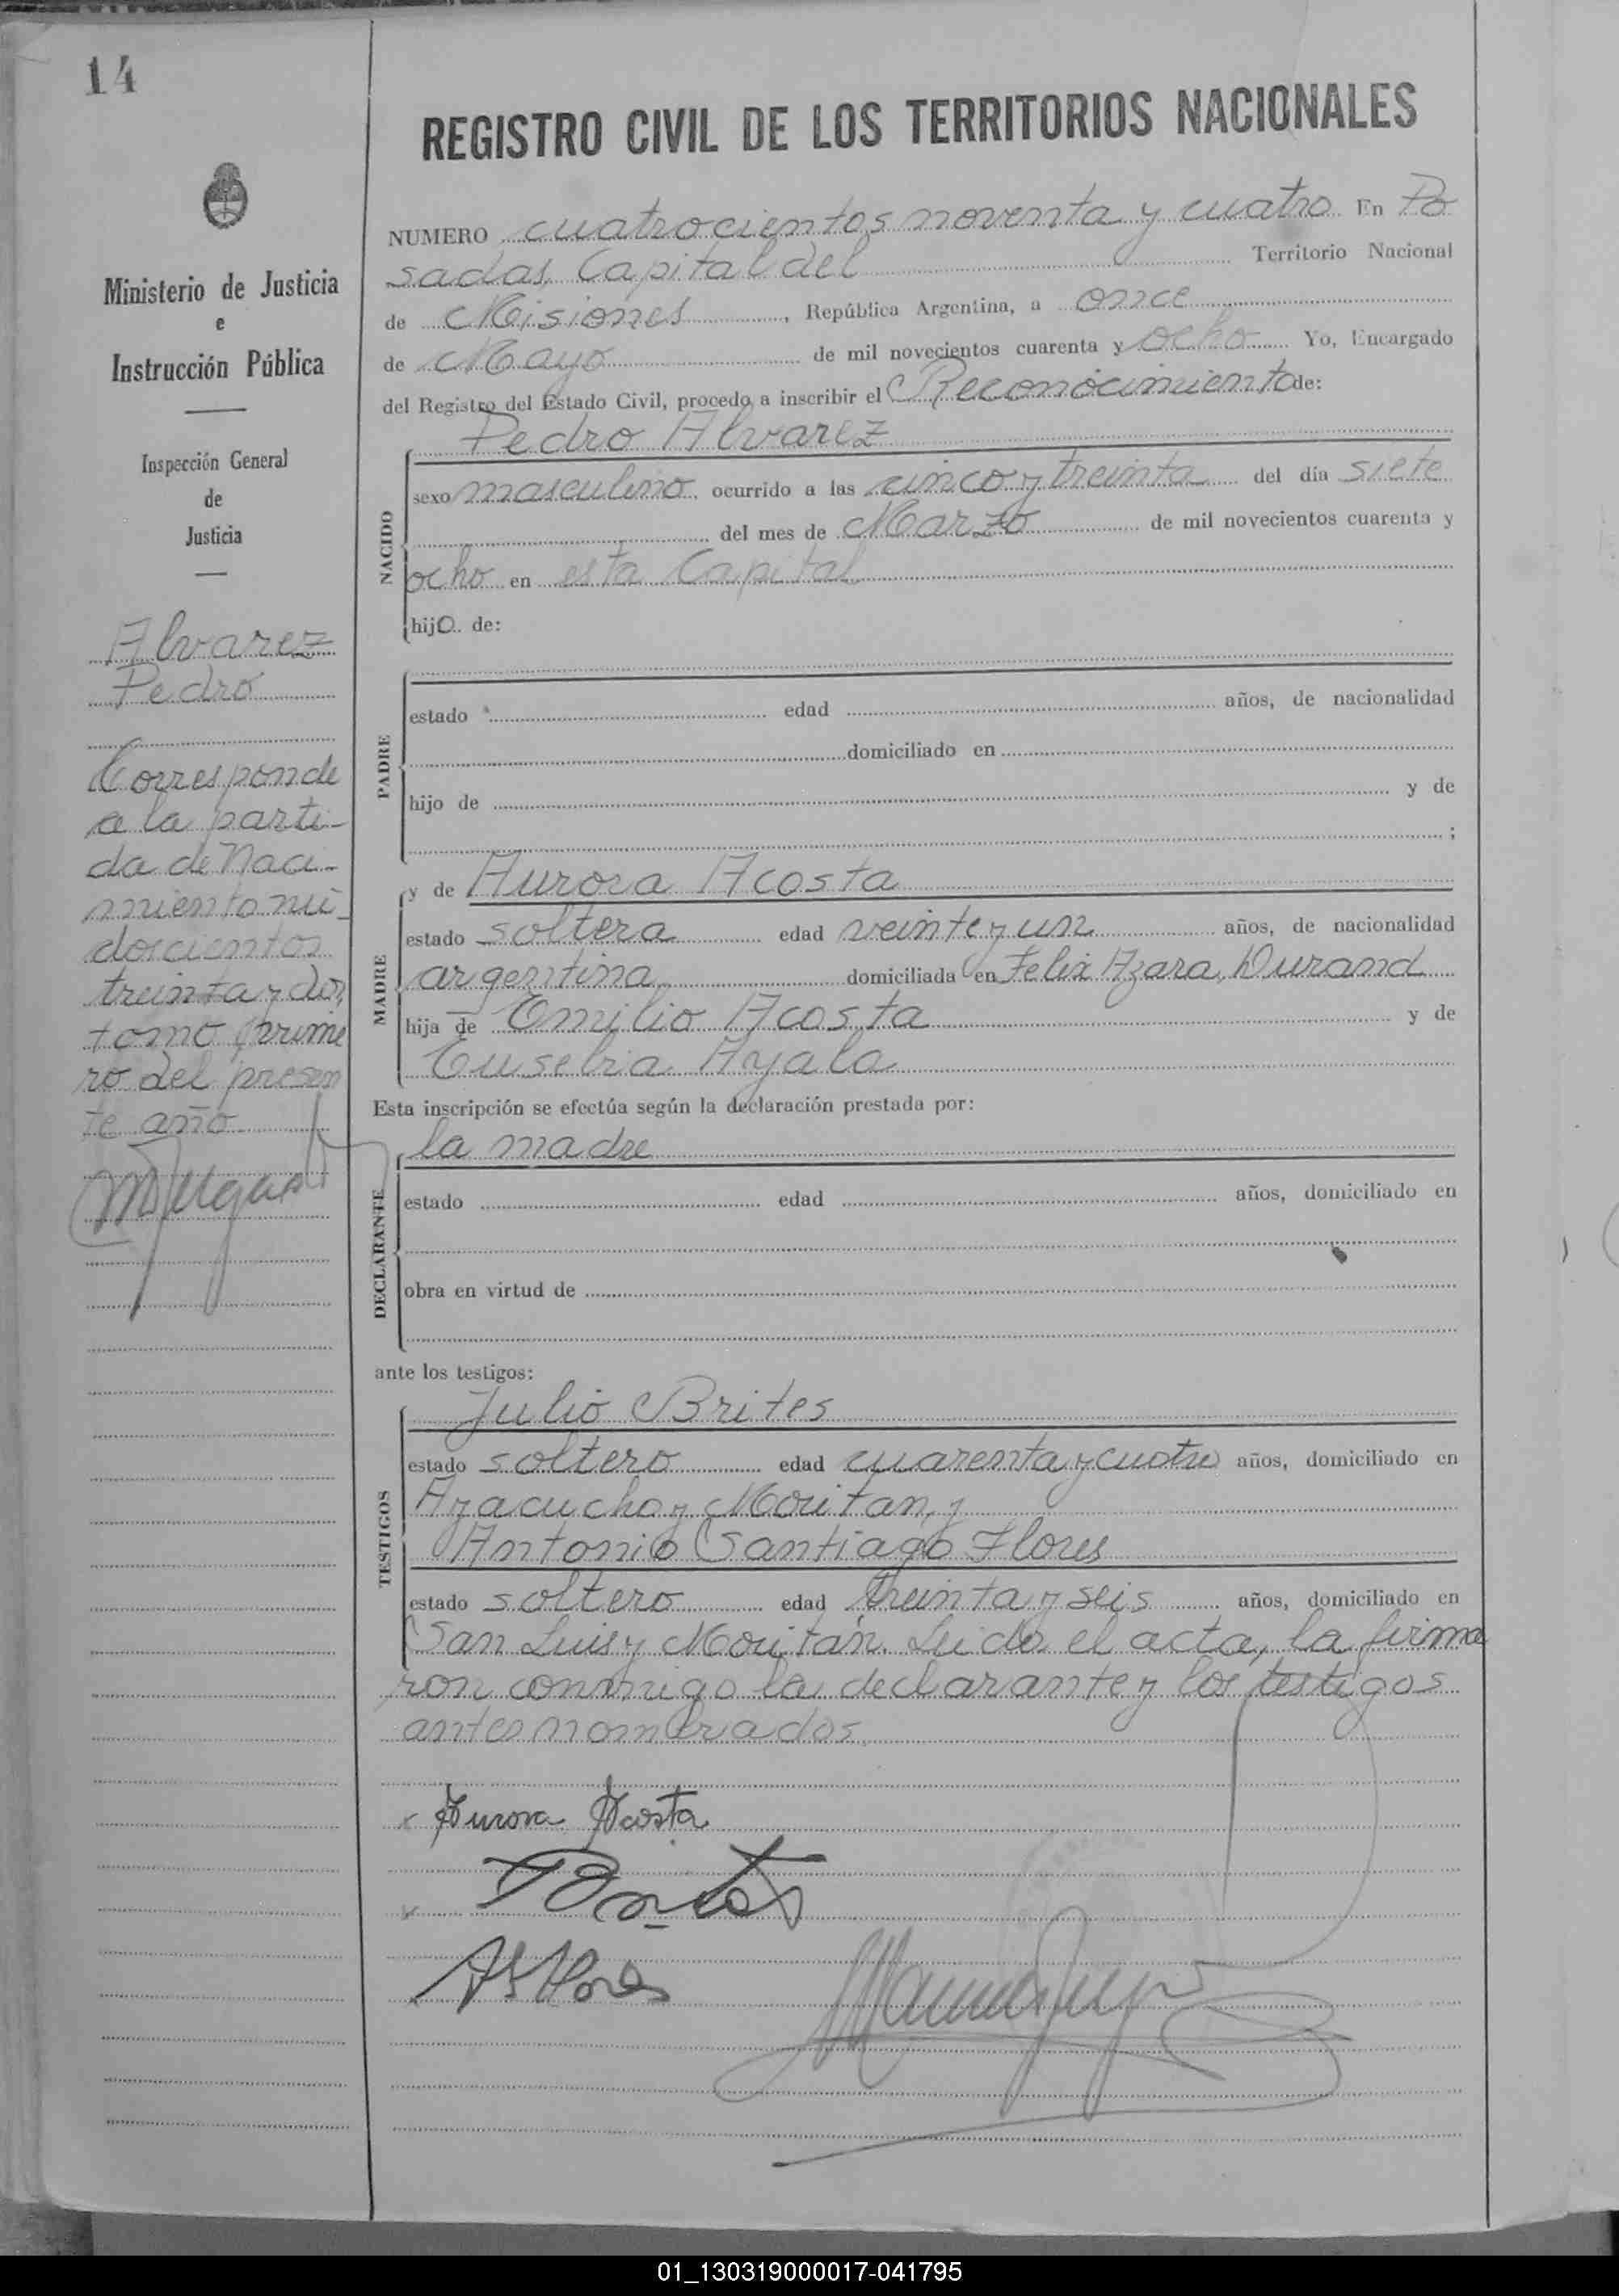 14
REGISTRO CIVIL DE LOS TERRITORIOS NACIONALES
Ministerio de Justicia
e
Instrucción Pública
Inspección General
de
Justicia
Alvarez
Pedro
Corresponde
a la parti-
da de Naci-
miento nú-
doscientos
treinta y dos,
tomo prime
ro del presen
te año
NUMERO cuatrocientos noventa y cuatro En Po
sadas, Capital del Territorio Nacional
de Misiones, República Argentina, a once
de Mayo de mil novecientos cuarenta y ocho Yo, Encargado
del Registro del Estado Civil, procedo a inscribir el Reconocimiento de:
NACIDO
Pedro Alvarez
sexo masculino, ocurrido a las cinco y treinta del día siete
del mes de Marzo de mil novecientos cuarenta y
ocho en esta Capital
hijo de:
PADRE
estado edad años, de nacionalidad
domiciliado en
hijo de y de
;
MADRE
y de Aurora Acosta
estado soltera edad veinte y un años, de nacionalidad
argentina domiciliada en Felix Azara, Durand
hija de Emilio Acosta y de
Eusebia Ayala
Esta inscripción se efectúa según la declaración prestada por:
DECLARANTE
la madre
estado edad años, domiciliado en
obra en virtud de
ante los testigos:
TESTIGOS
Julio Brites
estado soltero edad cuarenta y cuatro años, domiciliado en
Ayacucho y Moritan, y
Antonio Santiago Flores
estado soltero edad treinta y seis años, domiciliado en
San Luis y Moritán. Leida el acta, la firma
ron conmigo la declarante y los testigos
antes nombrados
x Aurora Acosta
x
AS Flores
01_130319000017-041795